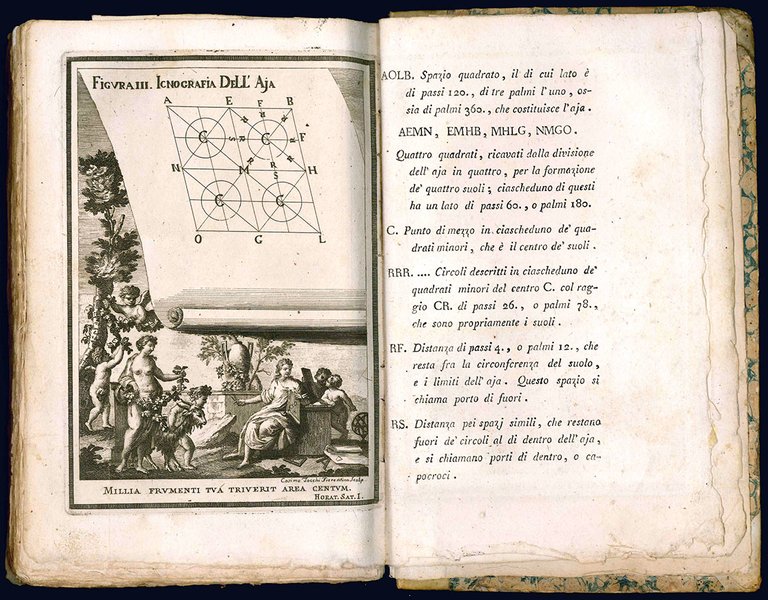 FIGVRA III. ICNOGRAFIA DELL' AJA
A E F B
R R
C S R C R F
R R
N M S H
C C
O G L
Cosimo Zocchi Fiorentino Sculp.
MILLIA FRVMENTI TVÁ TRIVERIT AREA CENTVM.
HORAT. SAT. I.
AOLB. Spazio quadrato, il di cui lato è
di passi 120., di tre palmi l'uno, os-
sia di palmi 360., che costituisce l'aja.
AEMN, EMHB, MHLG, NMGO.
Quattro quadrati, ricavati dalla divisione
dell' aja in quattro, per la formazione
de' quattro suoli; ciascheduno di questi
ha un lato di passi 60., o palmi 180.
C. Punto di mezzo in ciascheduno de' qua-
drati minori, che è il centro de' suoli.
RRR. .... Circoli descritti in ciascheduno de'
quadrati minori del centro C. col rag-
gio CR. di passi 26., o palmi 78.,
che sono propriamente i suoli.
RF. Distanza di passi 4., o palmi 12., che
resta fra la circonferenza del suolo,
e i limiti dell' aja. Questo spazio si
chiama porto di fuori.
RS. Distanza pei spazj simili, che restano
fuori de' circoli al di dentro dell' aja,
e si chiamano porti di dentro, o ca-
pocroci.